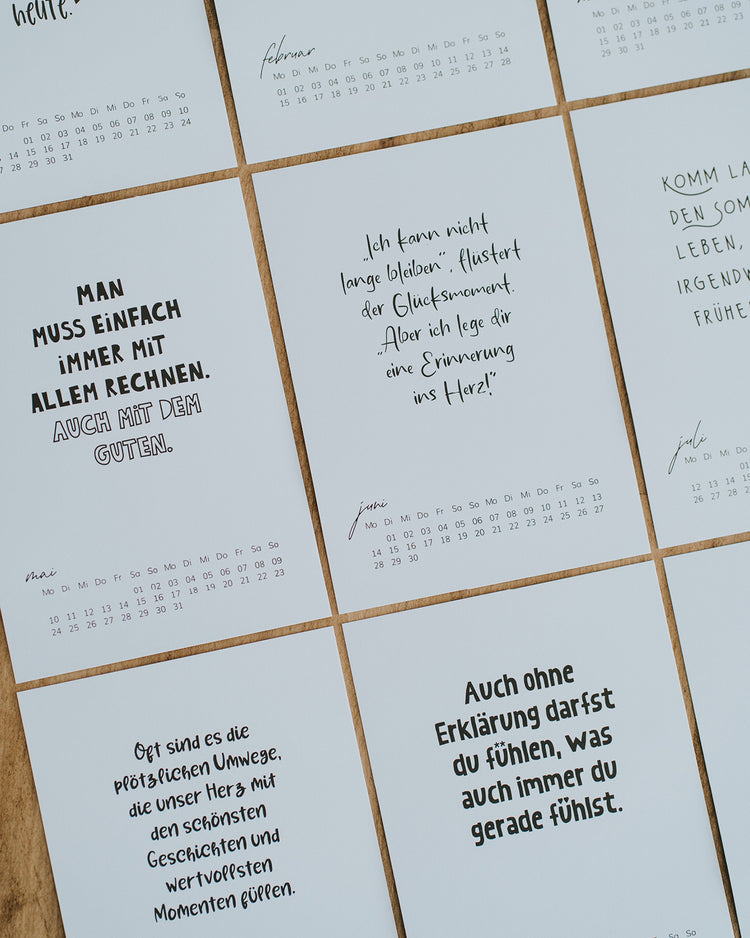 heute.
Do Fr Sa So Mo Di Mi Do Fr Sa So
01 02 03 04 05 06 07 08 09 10
14 15 16 17 18 19 20 21 22 23 24
28 29 30 31
februar
Mo Di Mi Do Fr Sa So Mo Di Mi Do Fr Sa So
01 02 03 04 05 06 07 08 09 10 11 12 13 14
15 16 17 18 19 20 21 22 23 24 25 26 27 28
Mo Di Mi Do Fr Sa So
01 02 03 04 05 06 07 08
15 16 17 18 19 20 21
29 30 31
MAN
MUSS EINFACH
IMMER MIT
ALLEM RECHNEN.
AUCH MIT DEM
GUTEN.
mai
Mo Di Mi Do Fr Sa So Mo Di Mi Do Fr Sa So
01 02 03 04 05 06 07 08 09
10 11 12 13 14 15 16 17 18 19 20 21 22 23
24 25 26 27 28 29 30 31
„Ich kann nicht
lange bleiben“, flüstert
der Glücksmoment.
„Aber ich lege dir
eine Erinnerung
ins Herz!“
juni
Mo Di Mi Do Fr Sa So Mo Di Mi Do Fr Sa So
01 02 03 04 05 06 07 08 09 10 11 12 13
14 15 16 17 18 19 20 21 22 23 24 25 26 27
28 29 30
KOMM LA
DEN SOM
LEBEN,
IRGENDW
FRÜHE
juli
Mo Di Mi Do
01
12 13 14 15
26 27 28 29
Oft sind es die
plötzlichen Umwege,
die unser Herz mit
den schönsten
Geschichten und
wertvollsten
Momenten füllen.
Auch ohne
Erklärung darfst
du fühlen, was
auch immer du
gerade fühlst.
Sa So